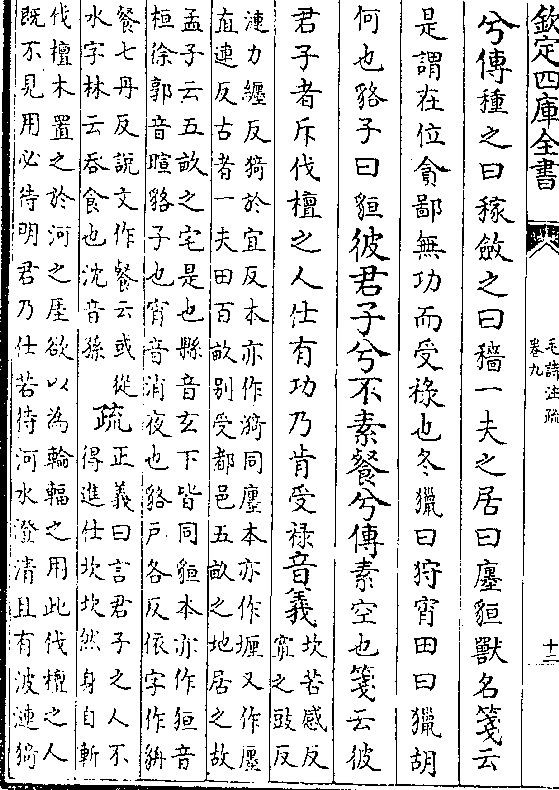 欽定四庫全書
毛詩注疏
卷九
十二
兮傳種之曰稼斂之曰穡一夫之居曰廛貆獸名箋云
是謂在位貪鄙無功而受祿也冬獵曰狩宵田曰獵胡
何也貉子曰貆彼君子兮不素餐兮傳素空也箋云彼
君子者斥伐檀之人仕有功乃肯受祿音義
坎苦感反
寘之豉反
漣力纏反猗於宜反本亦作漪同廛本亦作㕓又作廛
直連反古者一夫田百畝别受都邑五畝之地居之故
孟子云五畝之宅是也縣音玄下皆同貆本亦作狟音
桓徐郭音暄貉子也宵音消夜也貉戸各反依字作貈
餐七丹反說文作餐云或從
水字林云吞食也沈音孫
疏
正義曰言君子之人不
得進仕坎坎然身自斬
伐檀木置之於河之厓欲以為輪輻之用此伐檀之人
既不見用必待明君乃仕若待河水澄清且有波漣猗